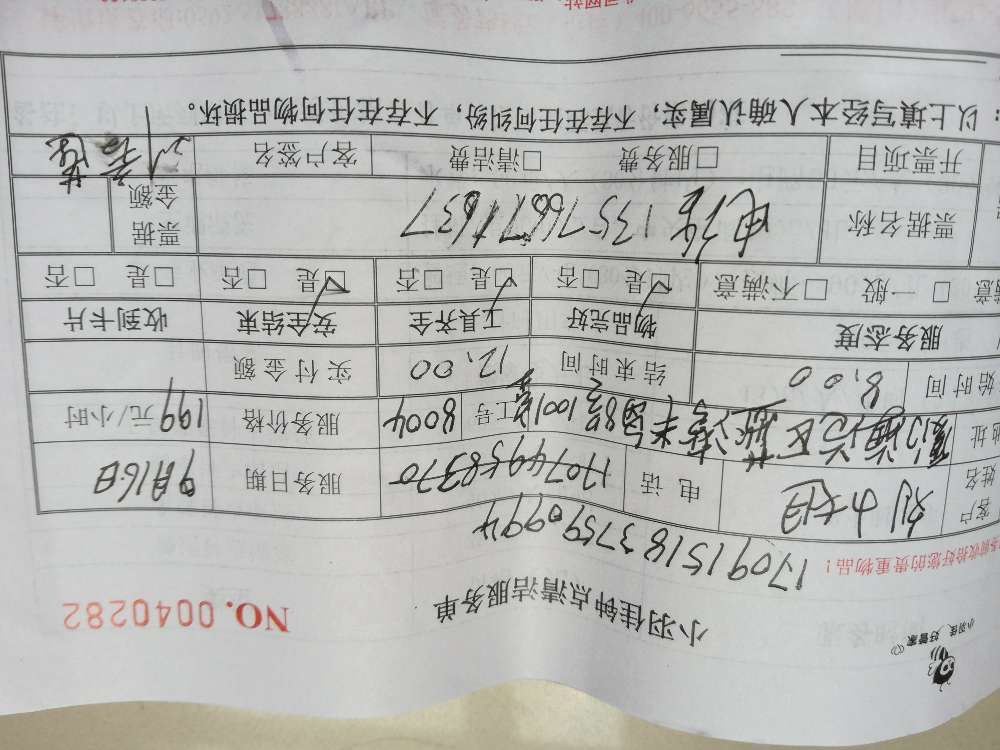 小羽佳 好管家
小羽佳钟点清洁服务单 NO.0040282
17091518 3759 0994
务前收拾好您的贵重物品！
客户姓名 刘小姐 电话 17074958370 服务日期 9月16日
地址 海沧区 8号1001室 工号 8004 服务价格 199元/小时
始时间 8:00 结束时间 12:00 实付金额
服务态度 物品完好 工具齐全 安全结束 收到卡片
满意 □一般 □不满意 ☑是 □否 ☑是 □否 ☑是 □否 □是 □否
票据名称 电话 13576671637 票据金额
开票项目 □服务费 □清洁费 客户签名
：以上填写经本人确认属实，不存在任何纠纷，不存在任何物品损坏。